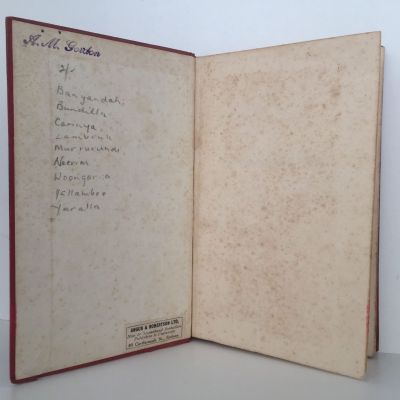 A. M. Gordon
2/-
Bangandah
Bundilla
Carinya
Murrurundi
Neerim
Woongarra
Yallambee
Yaralla
ANGUS & ROBERTSON LTD.
89 Castlereagh St., Sydney